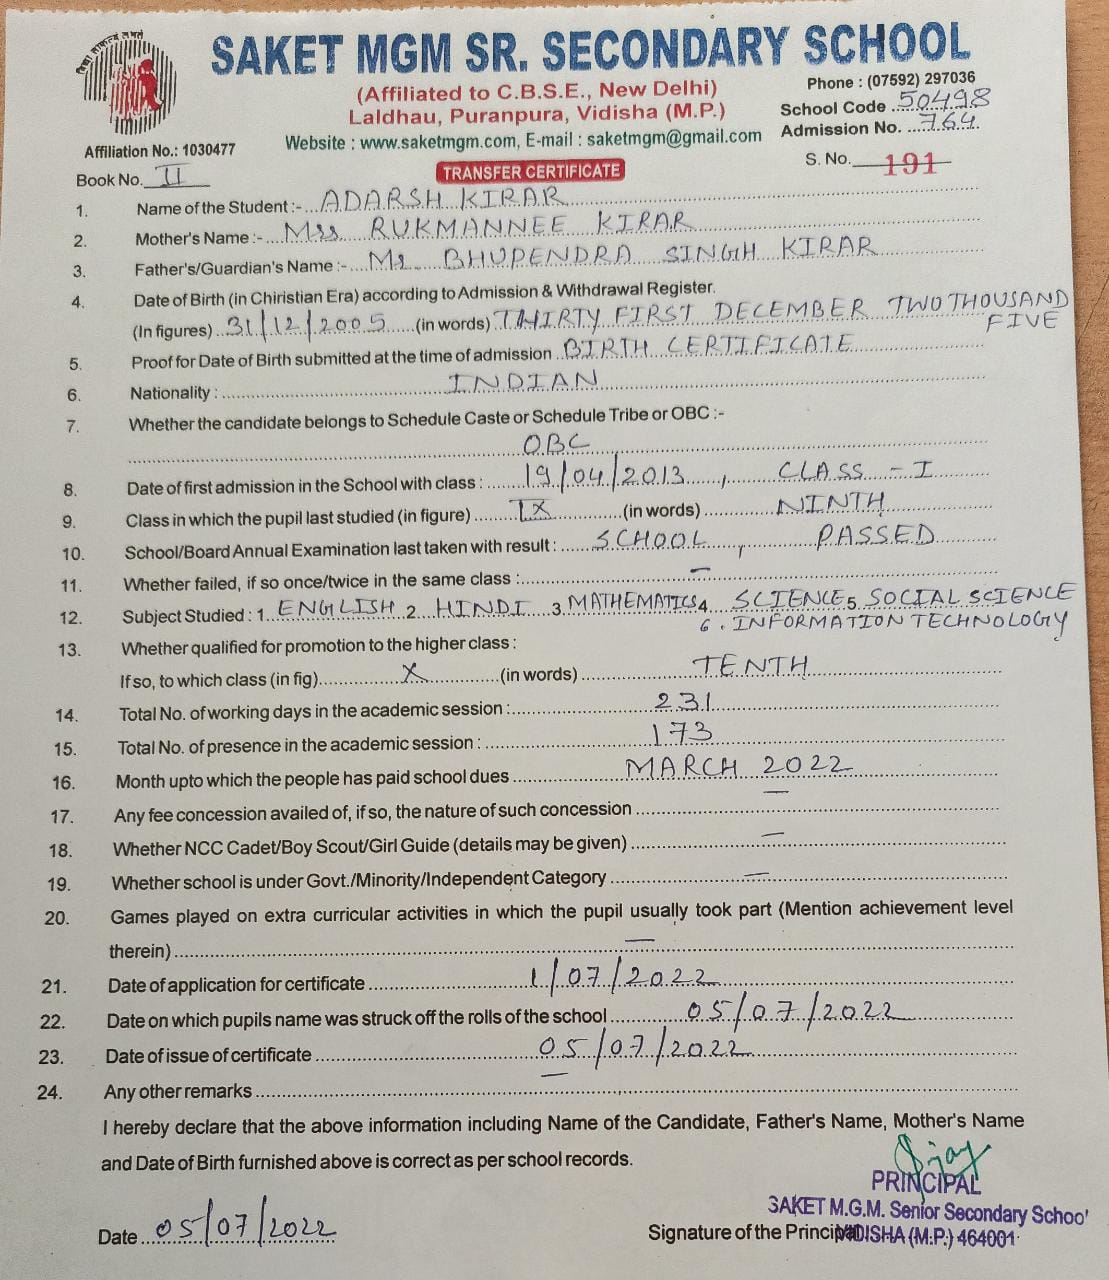 SAKET MGM SR. SECONDARY SCHOOL
(Affiliated to C.B.S.E., New Delhi)
Laldhau, Puranpura, Vidisha (M.P.)
Website : www.saketmgm.com, E-mail : saketmgm@gmail.com
Phone : (07592) 297036
School Code 50498
Admission No. 764
Affiliation No.: 1030477
Book No. II
TRANSFER CERTIFICATE
S. No. 191
1. Name of the Student :- ADARSH KIRAR
2. Mother's Name :- Mrs RUKMANNEE KIRAR
3. Father's/Guardian's Name :- Mr BHUPENDRA SINGH KIRAR
4. Date of Birth (in Chiristian Era) according to Admission & Withdrawal Register.
(In figures) 31/12/2005 (in words) THIRTY FIRST DECEMBER TWO THOUSAND
FIVE
5. Proof for Date of Birth submitted at the time of admission BIRTH CERTIFICATE
6. Nationality : INDIAN
7. Whether the candidate belongs to Schedule Caste or Schedule Tribe or OBC :-
OBC
8. Date of first admission in the School with class : 19/04/2013, CLASS - I
9. Class in which the pupil last studied (in figure) IX (in words) NINTH
10. School/Board Annual Examination last taken with result : SCHOOL, PASSED
11. Whether failed, if so once/twice in the same class : —
12. Subject Studied : 1. ENGLISH 2. HINDI 3. MATHEMATICS 4. SCIENCE 5. SOCIAL SCIENCE
6. INFORMATION TECHNOLOGY
13. Whether qualified for promotion to the higher class :
If so, to which class (in fig) X (in words) TENTH
14. Total No. of working days in the academic session : 231
15. Total No. of presence in the academic session : 173
16. Month upto which the people has paid school dues MARCH 2022
17. Any fee concession availed of, if so, the nature of such concession —
18. Whether NCC Cadet/Boy Scout/Girl Guide (details may be given) —
19. Whether school is under Govt./Minority/Independent Category —
20. Games played on extra curricular activities in which the pupil usually took part (Mention achievement level
therein) —
21. Date of application for certificate 1/07/2022
22. Date on which pupils name was struck off the rolls of the school 05/07/2022
23. Date of issue of certificate 05/07/2022
24. Any other remarks —
I hereby declare that the above information including Name of the Candidate, Father's Name, Mother's Name
and Date of Birth furnished above is correct as per school records.
PRINCIPAL
SAKET M.G.M. Senior Secondary School
Date 05/07/2022
Signature of the Principal
VIDISHA (M.P.) 464001